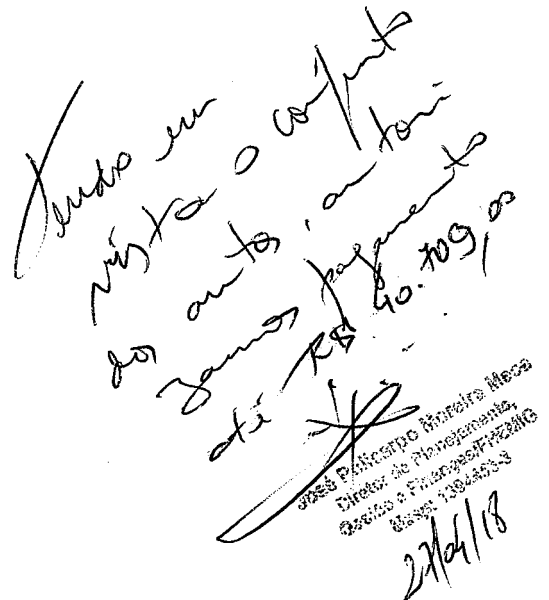 Tendo em
vista o conjunto
dos autos, autori
zamos pagamento
até R$ 40.709,00
José Policarpo Moreira Mece
Diretor de Planejamento,
Gestão e Finanças/FHEMIG
Masp:
27/04/18